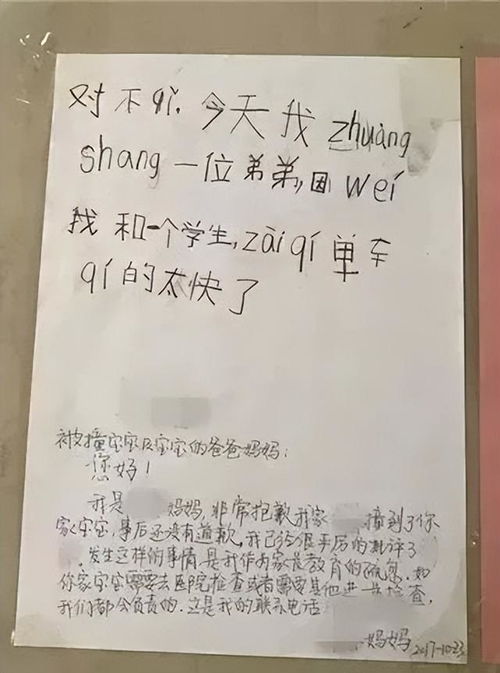 对不qǐ，今天我zhuàng
shang一位弟弟，因wèi
我和一个学生，zài qí单车
qí的太快了
被撞宝宝及宝宝的爸爸妈妈：
您好！
我是 妈妈，非常抱歉我家 撞到了你
家宝宝，事后还没有道歉。我已给很严厉的批评了
，发生这样的事情是我作为家长教育的疏忽，如
你家宝宝需要去医院检查或者需要其他进一步检查，
我们都会负责的。这是我的联系电话
妈妈 2017-10-23